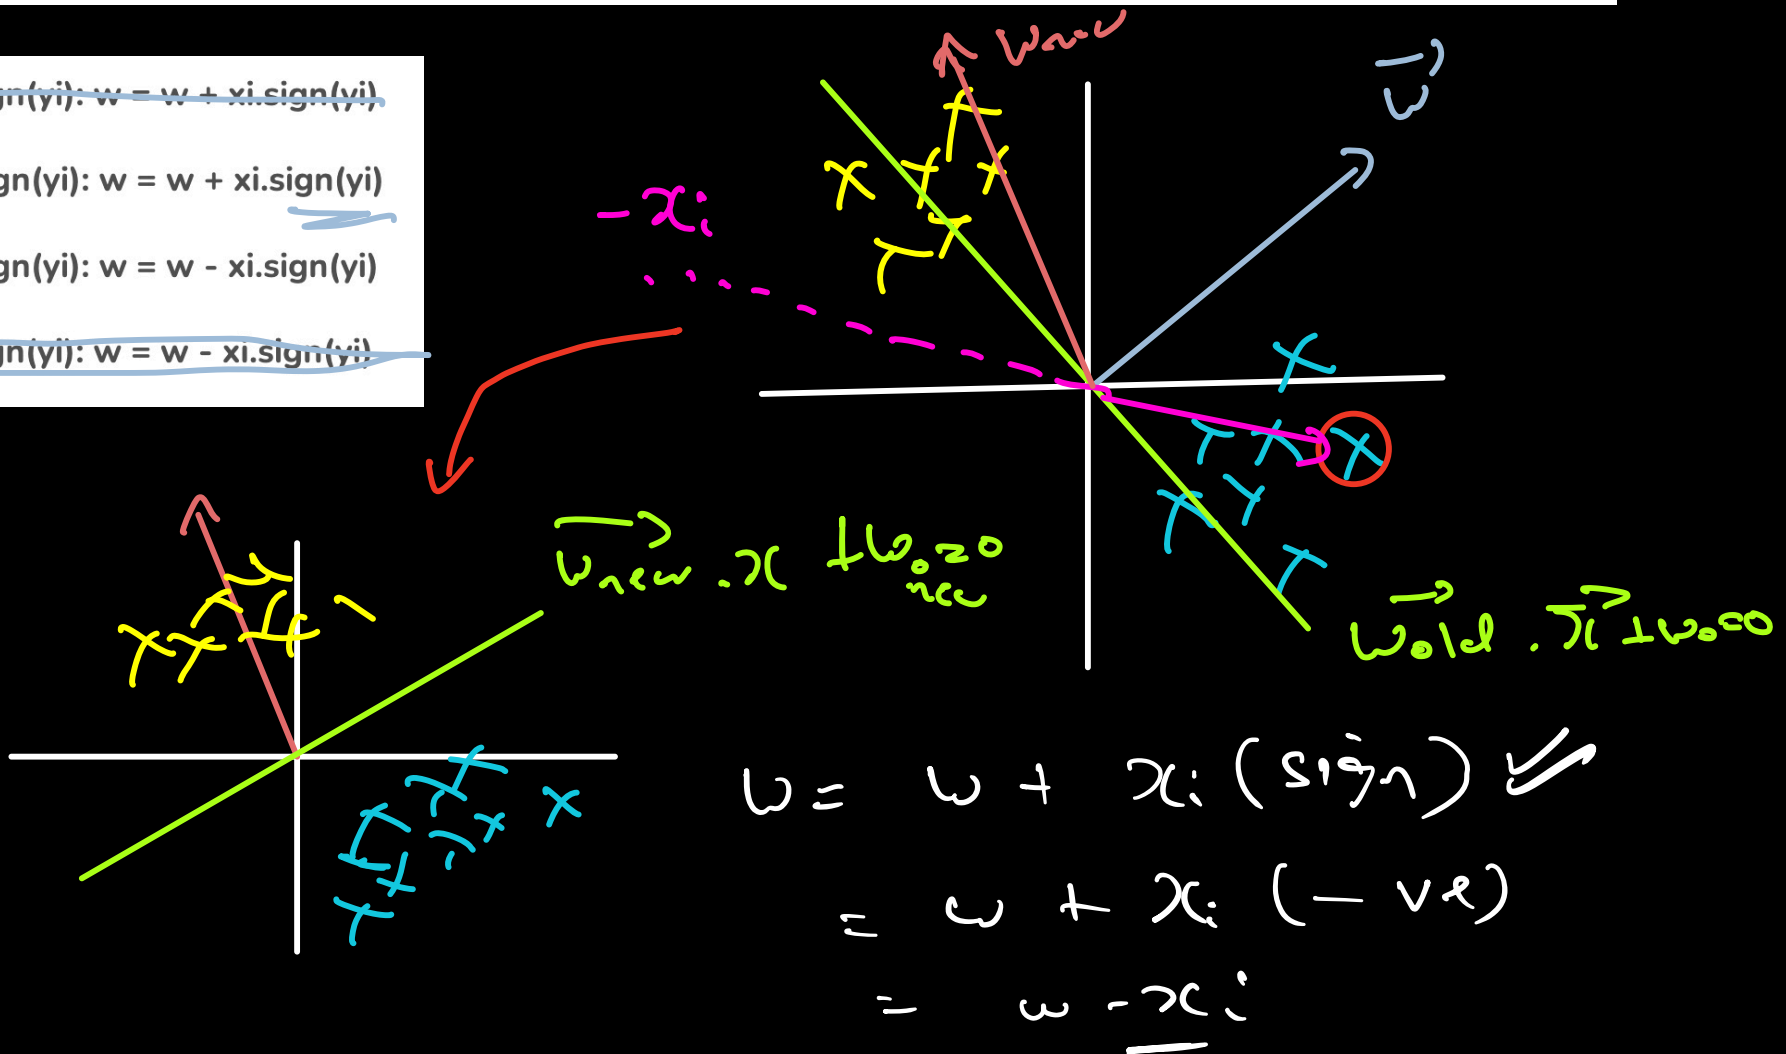 gn(yi): w = w + xi.sign(yi)
gn(yi): w = w + xi.sign(yi)
gn(yi): w = w - xi.sign(yi)
gn(yi): w = w - xi.sign(yi)
w new
w
- xi
w new . x + w₀ new = 0
w old . x + w₀ = 0
w = w + xi (sign)
= w + xi (-ve)
= w - xi